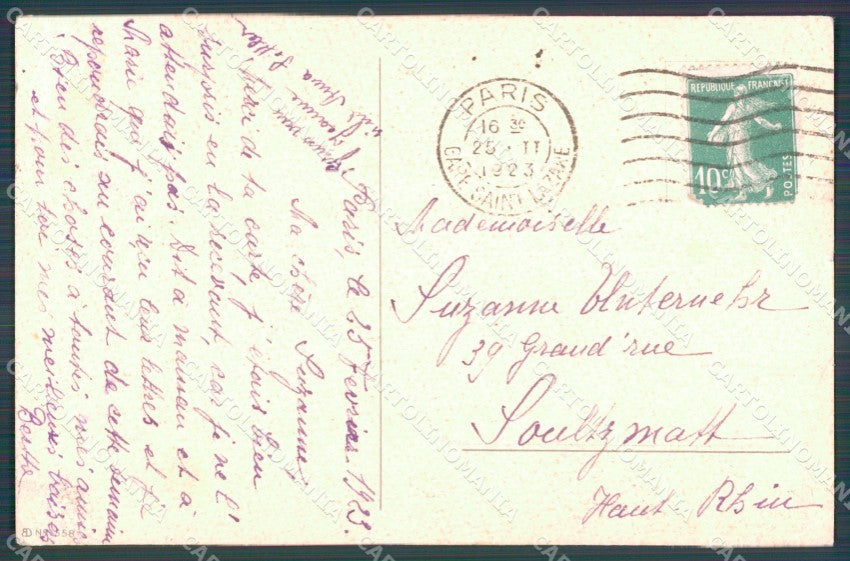 Paris, le 25 Février 1923.
Ma chère Suzanne!
Merci de ta carte, j'étais bien
en la recevant, car je ne l'
attendais pas. Dit à maman et à
Marie que j'ai reçu leurs lettres et je
repondrais au courant de cette semaine
Bien des choses à toutes mes amies
et pour toi mes meilleurs baisers
Berthe
PARIS
16 30
25 - II
1923
GARE SAINT-LAZARE
REPUBLIQUE FRANÇAISE
10c
POSTES
Mademoiselle
Suzanne Unternehr
39 Grand'rue
Soultzmatt
Haut Rhin
CARTOLINOMANIA